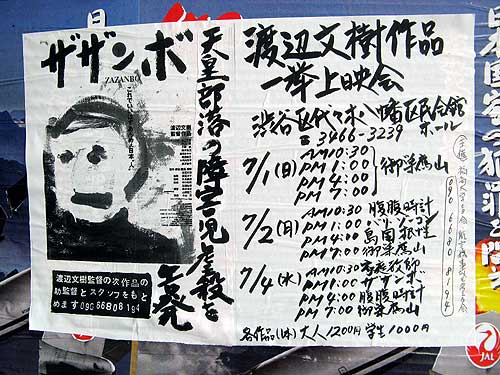 ザザンボ
ZAZANBO
これでいいのか、日本人。
渡辺文樹
監督作品
渡辺文樹監督の次作品の
助監督とスタッフをもと
めます 090 6680 8194
天皇部落の障害児虐殺を
告発
渡辺文樹作品
一挙上映会
渋谷区代々木八幡区民会館
ホール
☎ 3466-3239
7/1(日) AM10:30
PM 1:00
PM 4:00
PM 7:00
御巣鷹山
7/2(月) AM10:30 腹腹時計
PM 1:00 バリゾーゴン
PM 4:00 島国根性
PM 7:00 御巣鷹山
7/4(水) AM10:30 家庭教師
PM 1:00 ザザンボ
PM 4:00 腹腹時計
PM 7:00 御巣鷹山
各作品 大人1200円 学生1000円
090 6680 8194
JAL